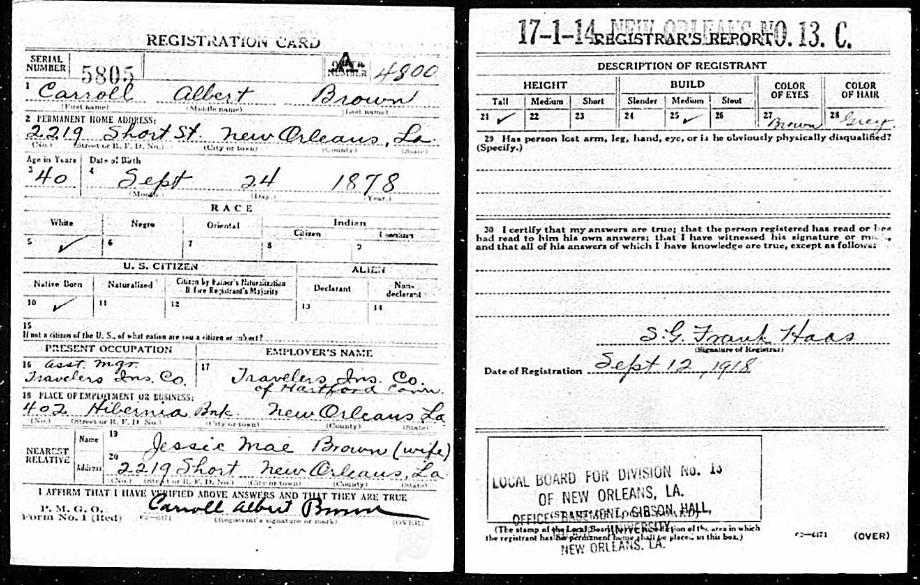 REGISTRATION CARD
SERIAL NUMBER 5805
ORDER NUMBER A 4800
1 Carroll Albert Brown
(First name) (Middle name) (Last name)
2 PERMANENT HOME ADDRESS:
2219 Short St. New Orleans, La
(No.) (Street or R. F. D. No.) (City or town) (County) (State)
Age in Years Date of Birth
3 40 4 Sept 24 1878
(Month.) (Day.) (Year.)
RACE
White Negro Oriental Indian
Citizen Noncitizen
5 ✓ 6 7 8 9
U. S. CITIZEN ALIEN
Native Born Naturalized Citizen by Father's Naturalization Before Registrant's Majority Declarant Non-declarant
10 ✓ 11 12 13 14
15
If not a citizen of the U. S., of what nation are you a citizen or subject?
PRESENT OCCUPATION EMPLOYER'S NAME
16 asst. mgr. 17
Travelers Ins. Co. Travelers Ins. Co.
of Hartford Conn.
18 PLACE OF EMPLOYMENT OR BUSINESS:
402 Hibernia Bnk New Orleans La
(No.) (Street or R. F. D. No.) (City or town) (County) (State)
NEAREST RELATIVE
Name 19 Jessie Mae Brown (wife)
Address 20 2219 Short New Orleans, La
(No.) (Street or R. F. D. No.) (City or town) (County) (State)
I AFFIRM THAT I HAVE VERIFIED ABOVE ANSWERS AND THAT THEY ARE TRUE
P. M. G. O.
Form No. 1 (Red) Carroll Albert Brown
(Registrant's signature or mark) (OVER)
17-1-14 NEW ORLEANS NO. 13. C.
REGISTRAR'S REPORT
DESCRIPTION OF REGISTRANT
HEIGHT BUILD COLOR OF EYES COLOR OF HAIR
Tall Medium Short Slender Medium Stout
21 ✓ 22 23 24 25 ✓ 26 27 Brown 28 Grey
29 Has person lost arm, leg, hand, eye, or is he obviously physically disqualified?
(Specify.)
30 I certify that my answers are true; that the person registered has read or has
had read to him his own answers; that I have witnessed his signature or mark,
and that all of his answers of which I have knowledge are true, except as follows:
S. G. Frank Haas
(Signature of Registrar)
Date of Registration Sept 12, 1918
LOCAL BOARD FOR DIVISION No. 13
OF NEW ORLEANS, LA.
OFFICE, BASEMENT, GIBSON HALL,
UNIVERSITY
NEW ORLEANS, LA.
(The stamp of the Local Board of the area in which
the registrant has his permanent home shall be placed in this box.)
(OVER)